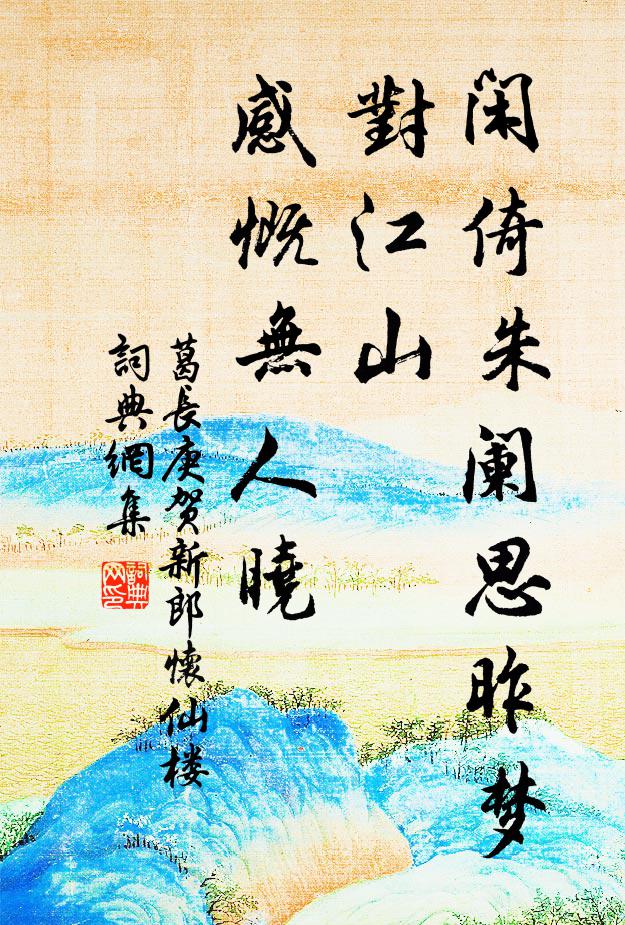 闲倚朱阑思昨梦
對江山
感慨無人曉
葛長庚贺新郎懷仙楼
詞典網集
詞典网印